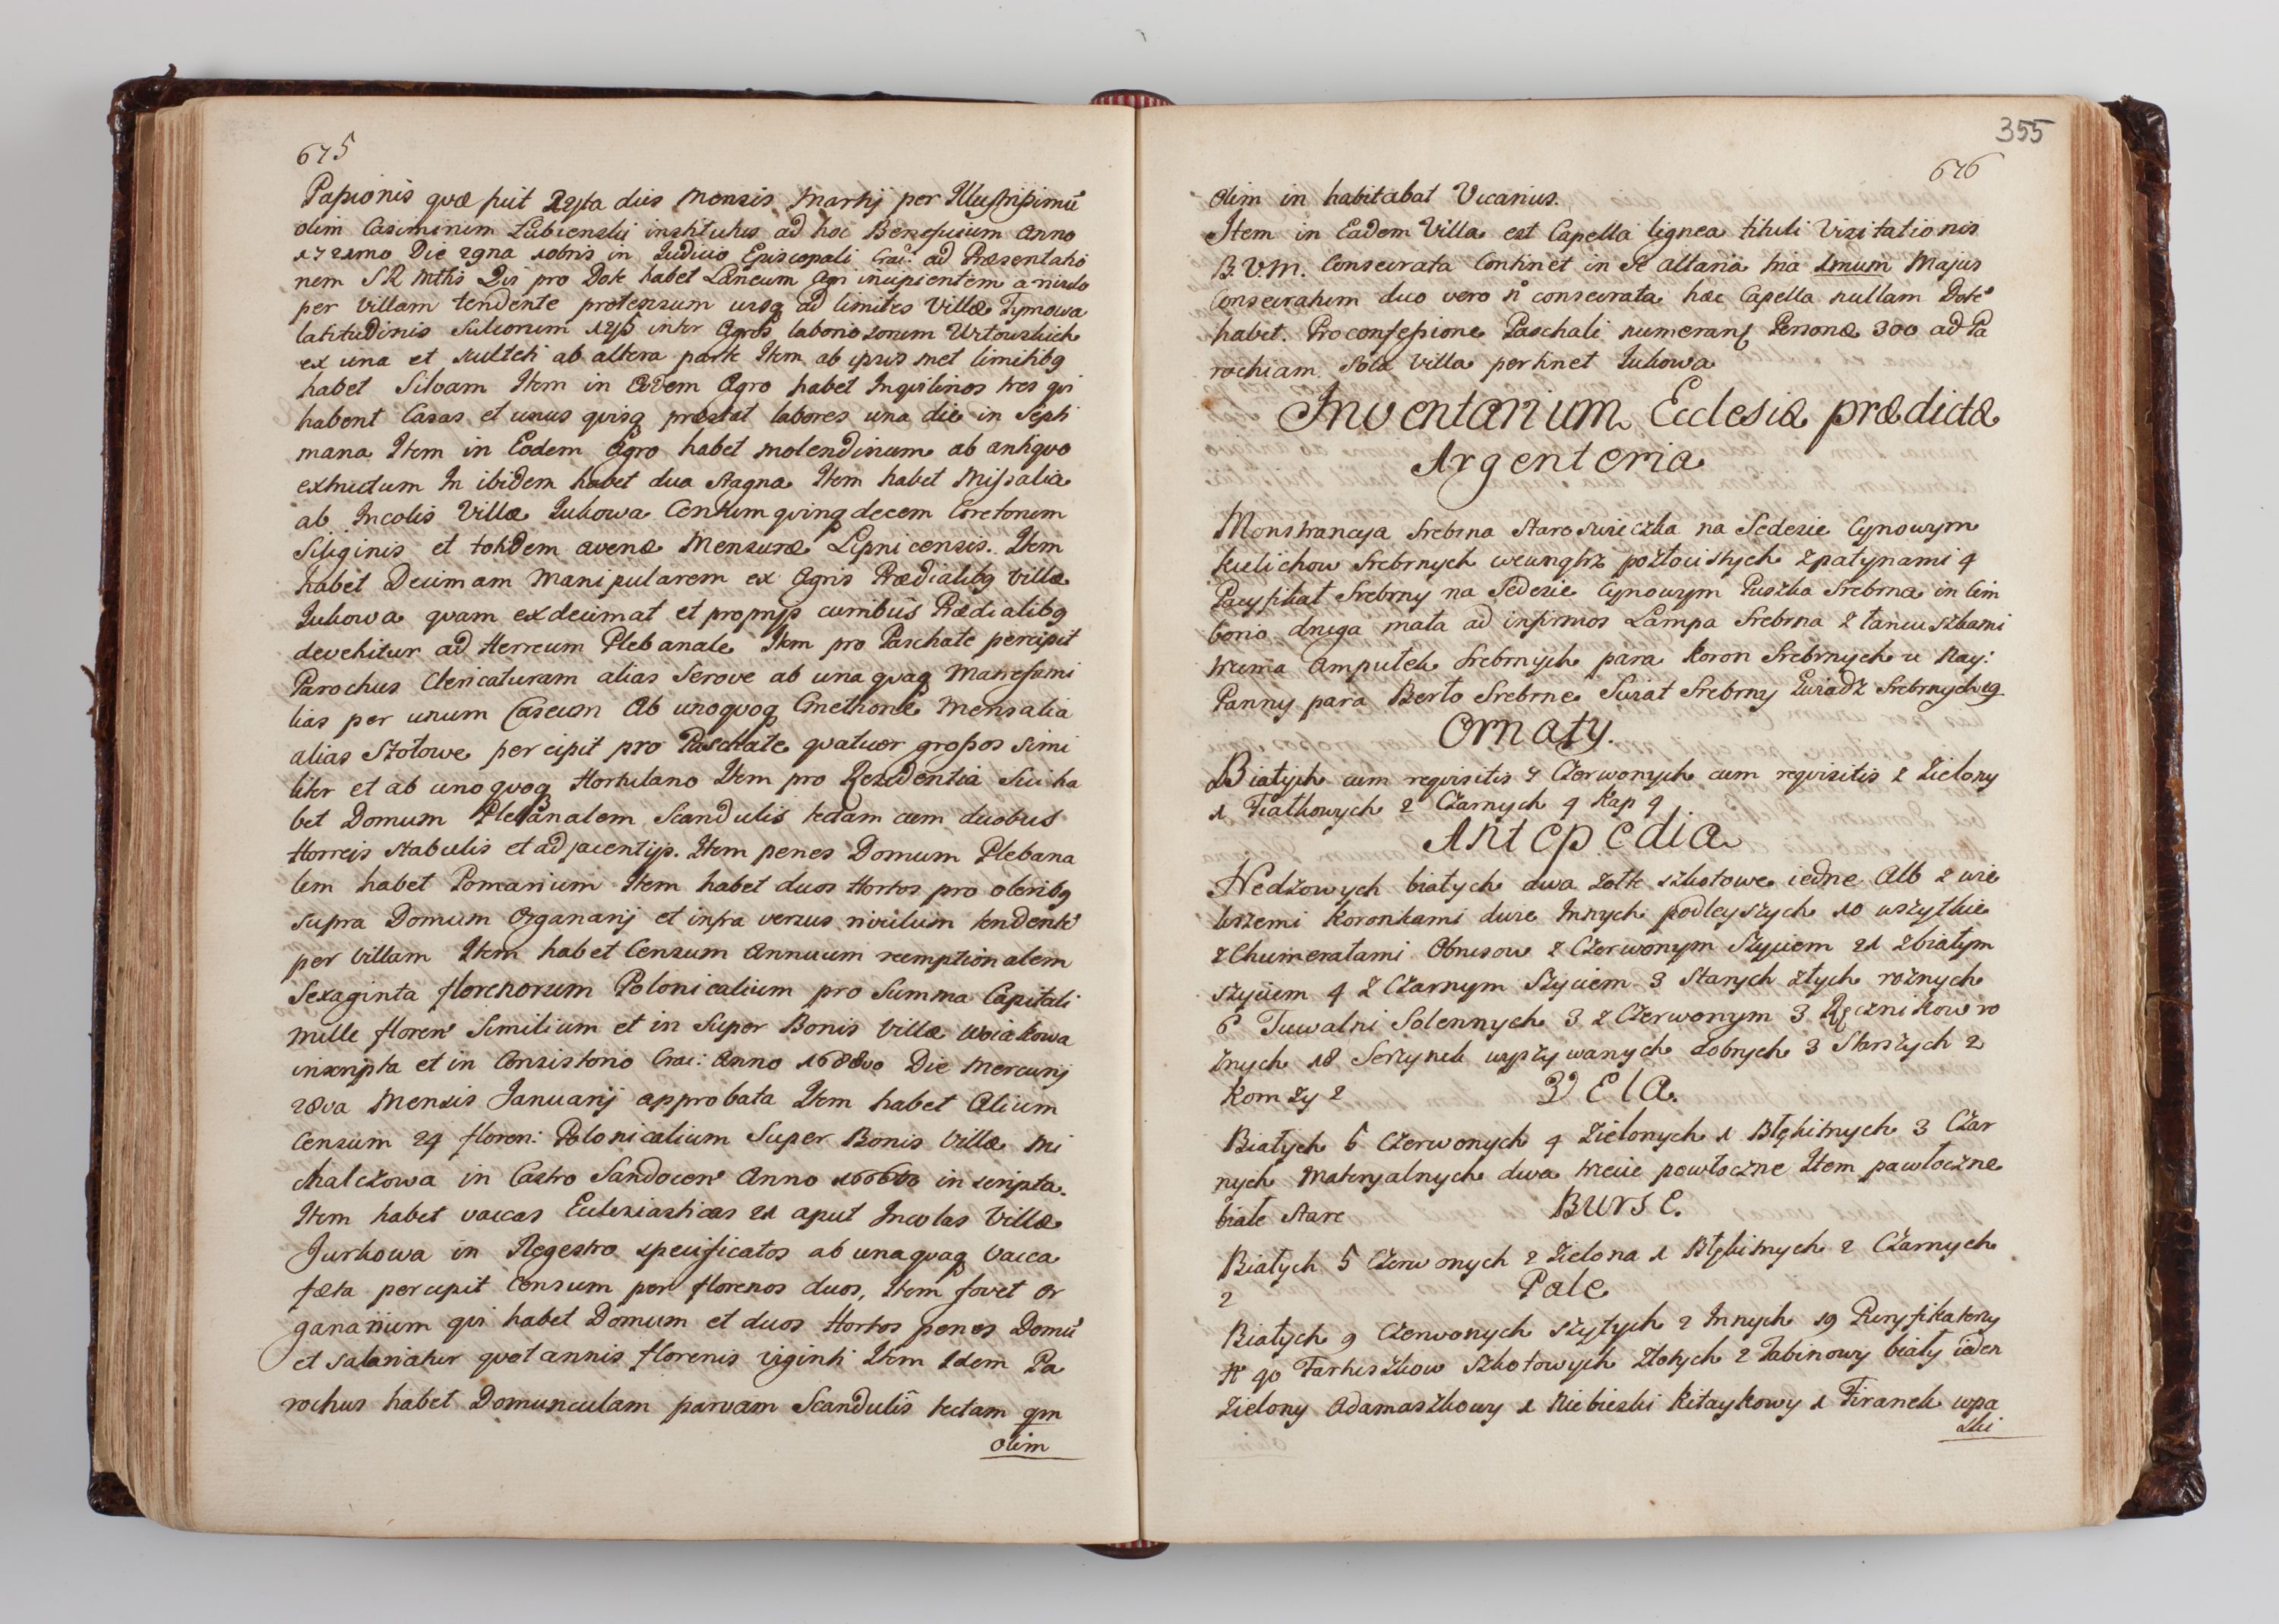 675
Passionis quæ fuit 22sta dies Mensis Martij per Illustrissimũ
olim Casimirum Lubienski institutus ad hoc Beneficium Anno
1721mo Die 2gna 10bris in Judicio Episcopali Crac: ad Præsentatio
nem SR Mttis Qui pro Dote habet Laneum Agri incipientem a
per Villam tendente protensum usq ad limites Villæ Tymowa
latitudinis Sulcorum inter Agros laboriosorum Urtowskich
ex una et sculteti ab altera parte Item ab ipsis met limitibq
habet Silvam Item in Eodem Agro habet Inqvilinos tres qvi
habent Casas et unus qvisq præstat labores una die in Septi
mana Item in Eodem Agro habet molendinum ab antiqvo
extructum In ibidem habet dua stagna Item habet Missalia
ab Incolis Villæ Jukowa Centum qvinqdecem Coretorum
Siliginis et totidem avenæ Mensuræ Lipnicensis. Item
habet Decimam Manipularem ex Agris Prædialibq Villæ
Jukowa qvam exdecimat et proprijs curribus Prædialibq
devehitur ad Horreum Plebanale Item pro Paschate percipit
Parochus Clericaturam alias Serowe ab una qvaq Manefami
lias per unum Caseum Ab unoqvoq Cmethone Mensalia
alias Stołowe percipit pro Paschate qvatuor grossos simi
liter et ab unoqvoq Hortulano Item pro Rezidentia Sui ha
bet Domum Plebanalem Scandulis tectam cum duobus
Horreis stabulis et adjacentijs. Item penes Domum Plebana
lem habet Pomarium Item habet duos Hortos pro oleribq
supra Domum Organarij et infra versus rivulum tendentẽ
per Villam Item habet Censum Annuum reemptionalem
Sexaginta florenorum Polonicalium pro Summa Capitali
mille floren Similium et in Super Bonis Villæ Wiatowa
inscripta et in Consistorio Crac: Anno 1688vo Die Mercurij
28va Mensis Januarij approbata Item habet Alium
Censum 24 floren: Polonicalium Super Bonis Villæ Mi
chalczowa in Castro Sandecen Anno 1666to inscripta.
Item habet vaccas Ecclesiasticas 21 aput Incolas Villæ
Jurkowa in Regestro specificatos ab unaqvaq vacca
fæta percipit Censum per florenos duos, Item fovet Or
ganarium qvi habet Domum et duos Hortos penes Domũ
et salariatur qvotannis florenis viginti Item Idem Pa
rochus habet Domunculam parvam Scandulis tectam qm
olim
355
676
olim in habitabat Vicarius.
Item in Eadem Villa est Capella lignea tituli Visitationis
B.V.M. Consecrata Continet in se altaria tria 1mum Majus
Consecratum duo vero ñ consecrata hæc Capella nullam Dotẽ
habet. Pro confessione Paschali numerant Personæ 300 ad Pa
rochiam sola Villa pertinet Jukowa
Inventarium Ecclesiæ prædictæ
Argenteria
Monstrancya Srebrna Staroswieczka na Sedesie Cynowym
Kielichow Srebrnych wewnątrz pozłocistych z patynami 4
Pacyfikał Srebrny na Pedesie Cynowym Puszka Srebrna in Cim
borio druga mała ad infirmos Lampa Srebrna z łancuszkami
trzema Ampułek Srebrnych para Koron Srebrnych u Nay:
Panny para Berło Srebrne Swiat Srebrny Gwiazd Srebrnych 19
Ornaty.
Białych cum reqvisitis 4 Czerwonych cum reqvisitis 2 Zielony
1 Fiałkowych 2 Czarnych 4 Kap 4
Antepedia
Nedzowych białych dwa żołte szkotowe iedne Alb z wie
krzemi Koronkami dwie Innych podleyszych 10 wszytkie
z Chumerałami Obrusow z Czerwonym Szyciem 21 z białym
szyciem 4 z Czarnym Szyciem 3 Starych złych rożnych
6 Tuwalni Solennych 3 z Czerwonym 3 Ręcznikow ro
żnych 18 Serzynek wyszywanych dobrych 3 Starszych 2
Komży 2 Vela.
Białych 5 Czerwonych 4 Zielonych 1 Błękitnych 3 Czar
nych Materyalnych dwa trzecie powłoczne Item pawłoczne
białe stare Burse.
Białych 5 Czerwonych 2 Zielona 1 Błękitnych 2 Czarnych
2 Pale
Białych 9 Czerwonych szytych 2 Innych 19 Puryfikaterzy
90 Farkuszkow Szkotowych Złotych 2 Tabinowy biały ieden
Zielony Adamaszkowy 1 Niebieski Kitaykowy 1 Firanek wpa
ski